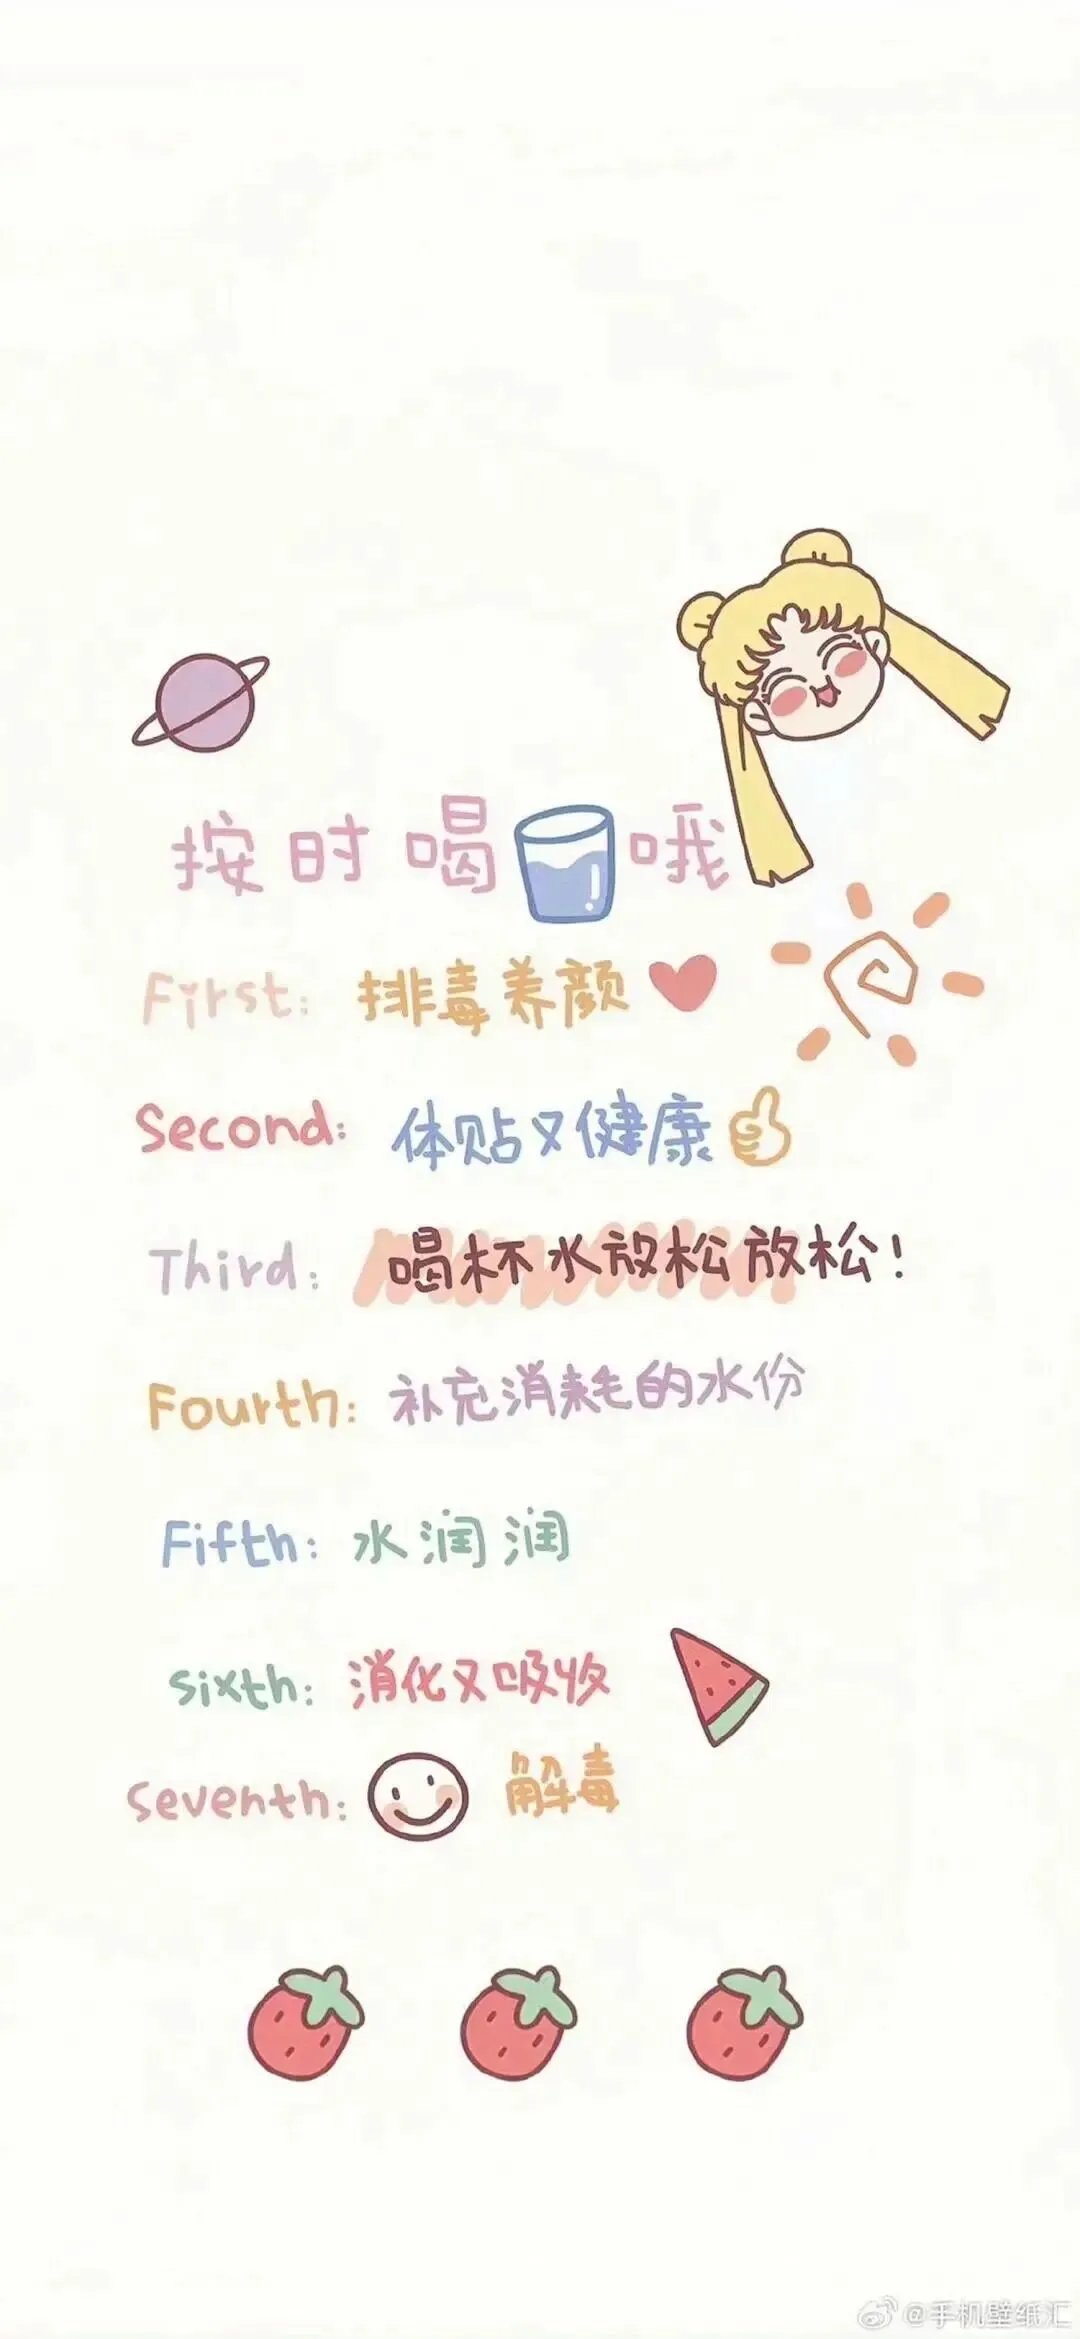 按时喝哦
First: 排毒养颜
Second: 体贴又健康
Third: 喝杯水放松放松!
Fourth: 补充消耗的水份
Fifth: 水润润
Sixth: 消化又吸收
Seventh: 解毒
@手机壁纸汇